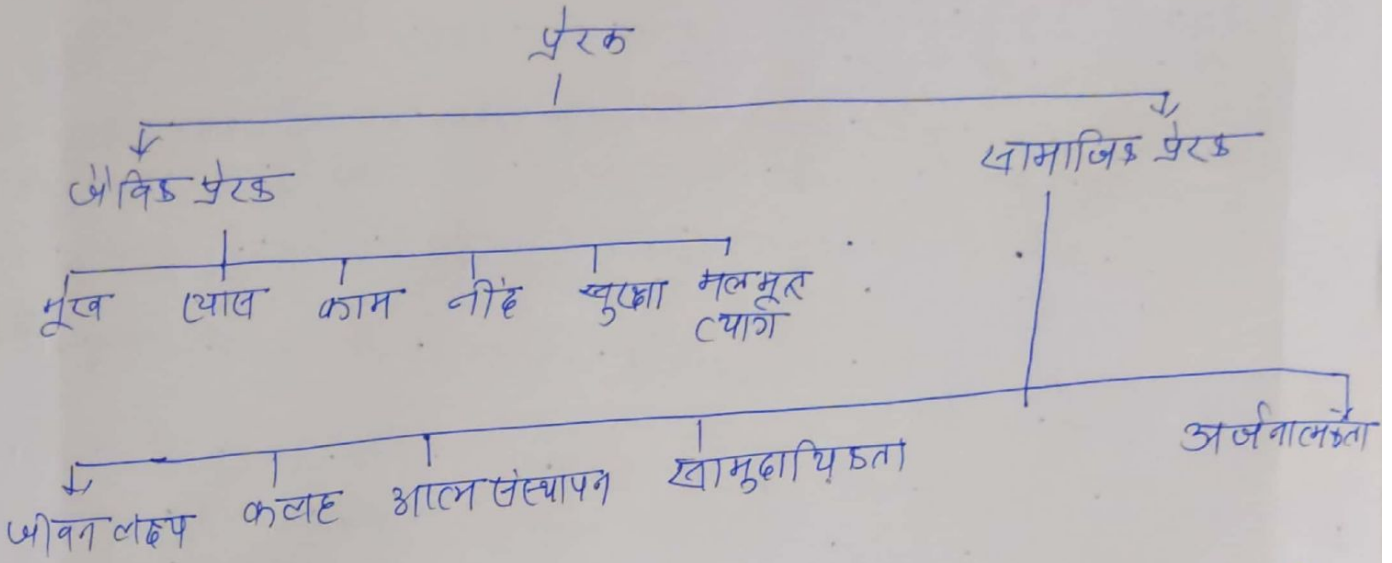 प्रेरक
जैविक प्रेरक
सामाजिक प्रेरक
भूख प्यास काम नींद सुरक्षा मलमूत्र
त्याग
जीवन लक्ष्य कलह आत्म संस्थापन सामुदायिकता अर्जनात्मकता